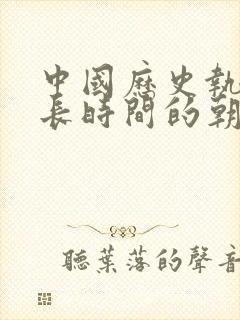 中國歷史執
長時間的朝
聽葉落的聲音